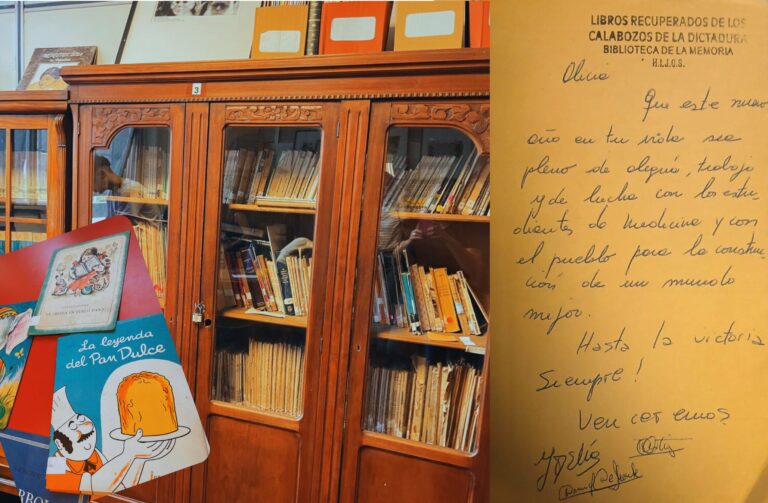 3
La leyenda
del Pan Dulce
LIBROS RECUPERADOS DE LOS
CALABOZOS DE LA DICTADURA
BIBLIOTECA DE LA MEMORIA
H.I.J.O.S.
Olicia
Que este nuevo
año en tu vida sea
pleno de alegría, trabajo
y de lucha con los estu
diantes de Medicina y con
el pueblo para la construc
ción de un mundo
mejor.
Hasta la victoria
Siempre!
Venceremos